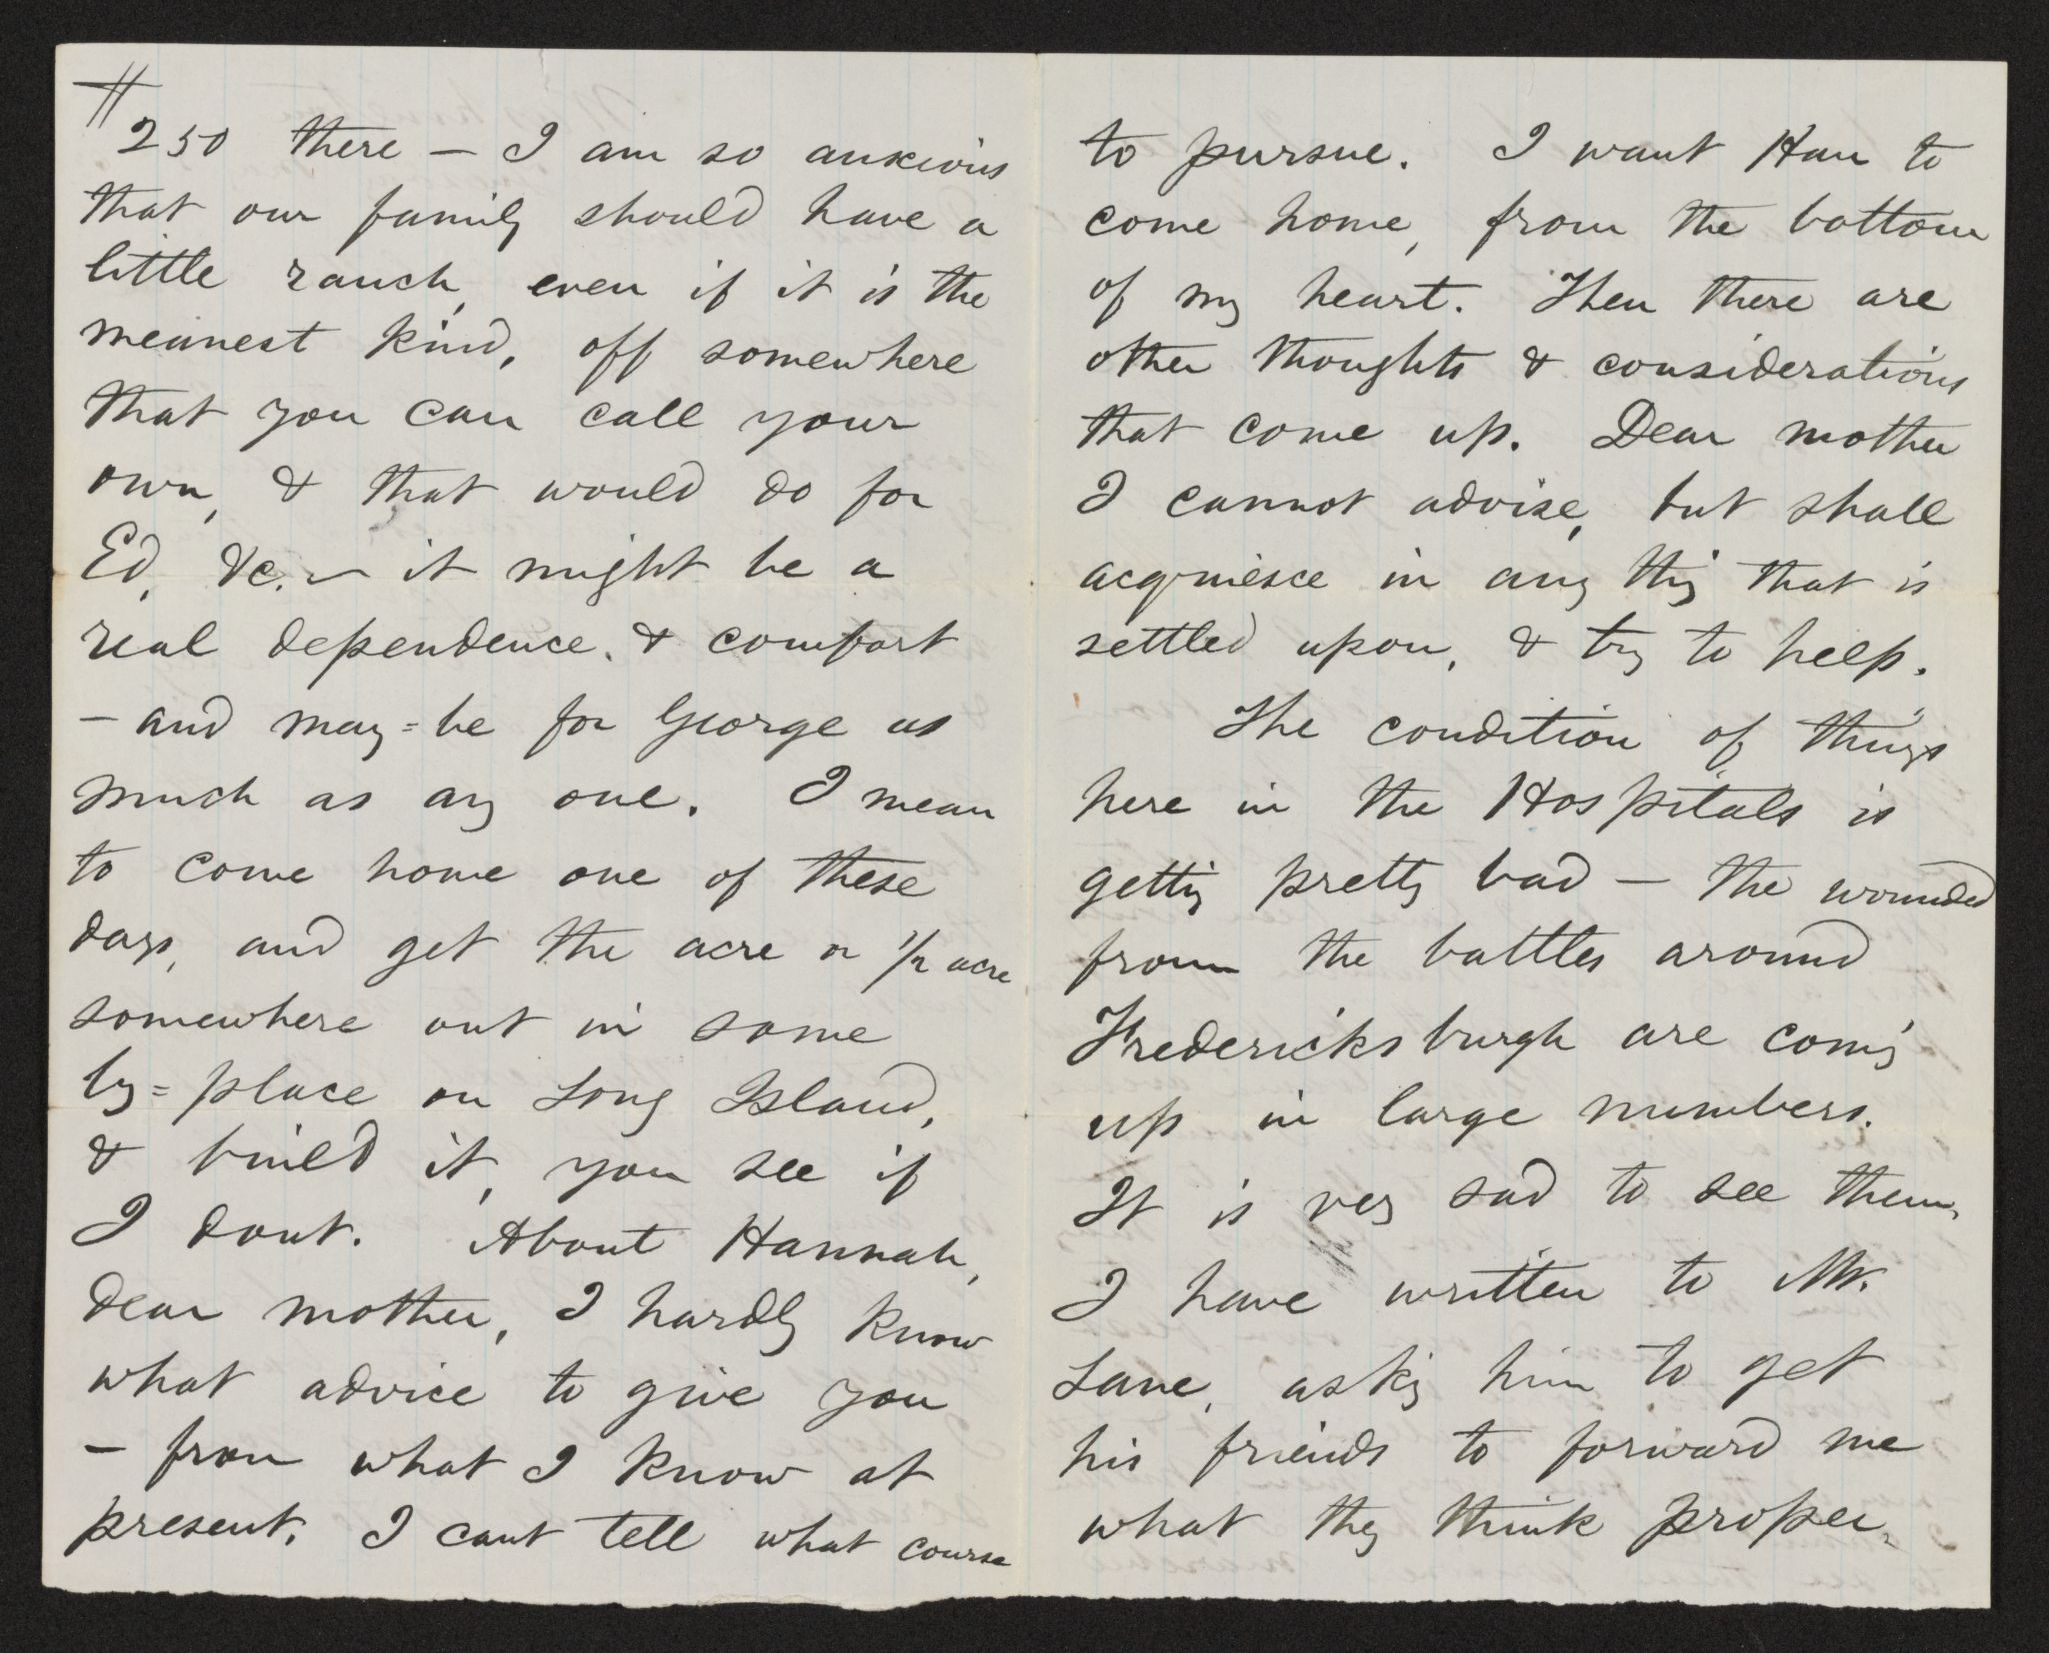 #
250 there — I am so anxious
that our family should have a
little ranch, even if it is the
meanest kind, off somewhere
that you can call your
own, & that would do for
Ed, &c. — it might be a
real dependence, & comfort
— and may=be for George as
much as any one. I mean
to come home one of these
days, and get the acre or 1/2 acre
somewhere out in some
by=place on Long Island,
& build it, you see if
I dont. About Hannah,
dear mother, I hardly know
what advice to give you
— from what I know at
present, I cant tell what course
to pursue. I want Han to
come home, from the bottom
of my heart. Then there are
other thoughts & considerations
that come up. Dear mother
I cannot advise, but shall
acquiesce in any thing that is
settled upon, & try to help.
The condition of things
here in the Hospitals is
getting pretty bad — the wounded
from the battles around
Fredericksburgh are coming
up in large numbers.
It is very sad to see them,
I have written to Mr.
Lane, asking him to get
his friends to forward me
what they think proper,